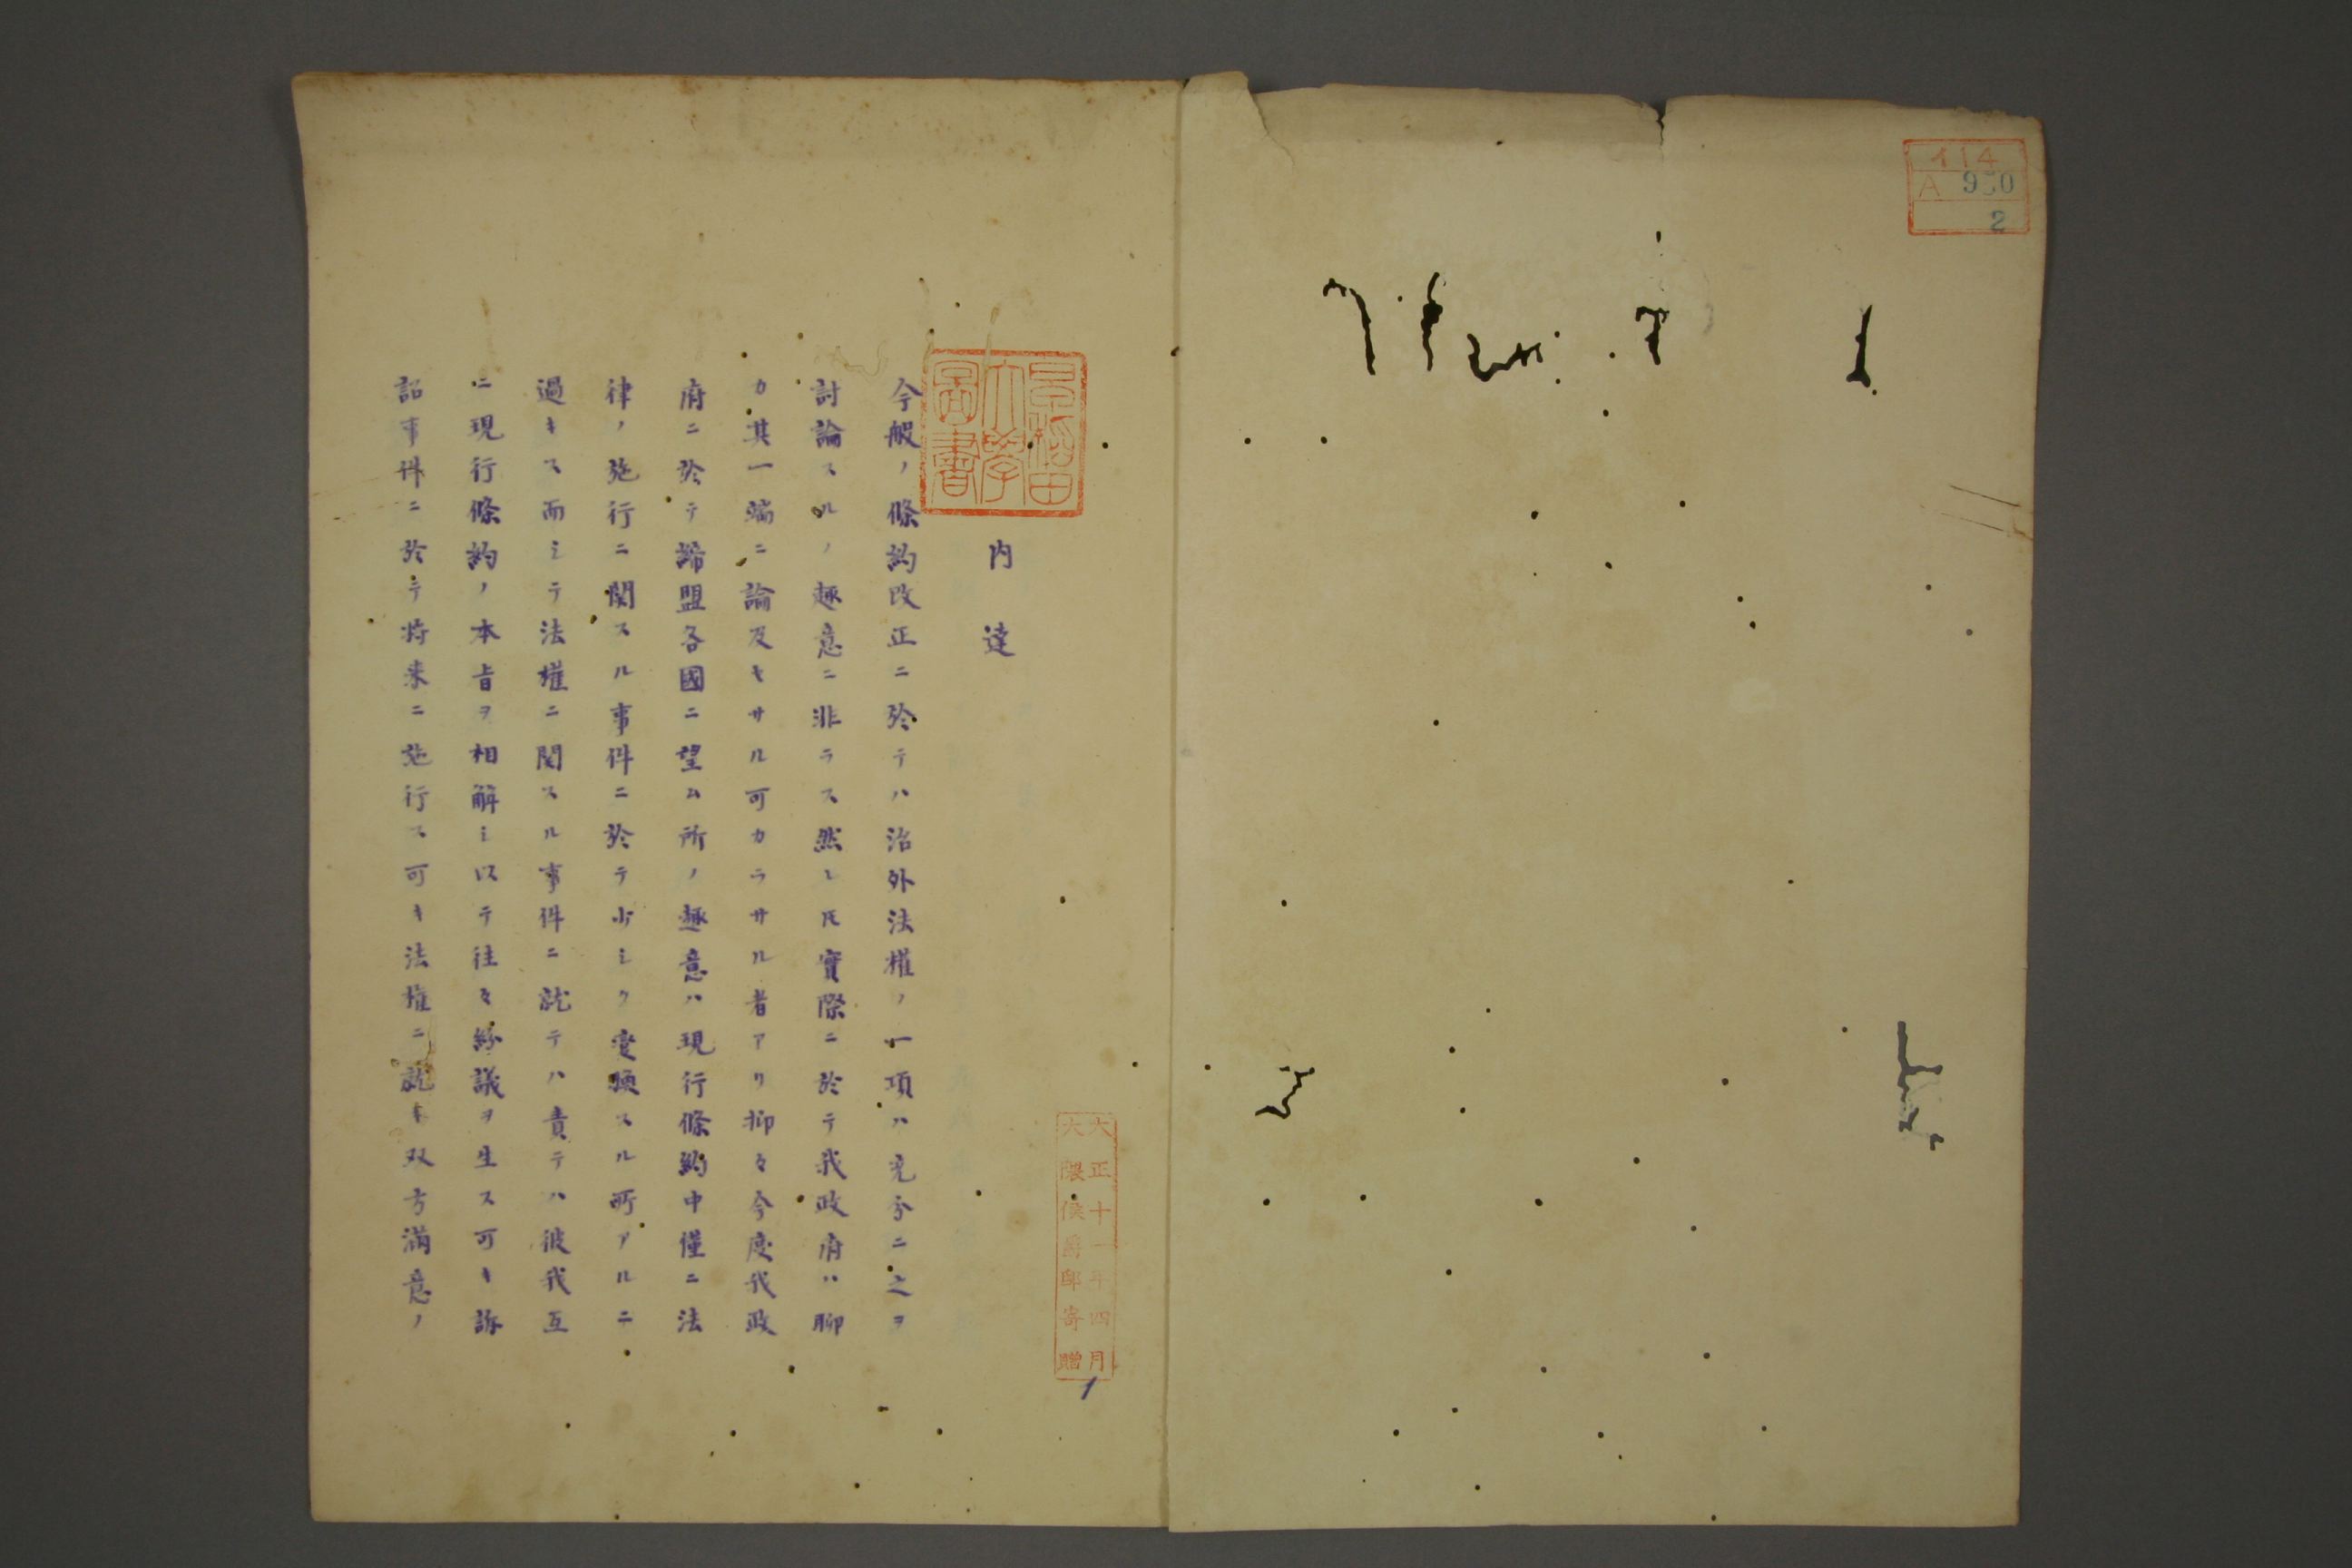 イ14
A 950
2
早稲田
大學
圖書
内達
今般ノ條約改正ニ於テハ治外法權ノ一項ハ充分ニ之ヲ
討論スルノ趣意ニ非ラス然レ𪜈實際ニ於テ我政府ハ聊
カ其一端ニ論及セサル可カラサル者アリ抑々今度我政
府ニ於テ締盟各國ニ望ム所ノ趣意ハ現行條約中僅ニ法
律ノ施行ニ関スル事件ニ於テ少シク変換スル所アルニ
過キス而シテ法權ニ関スル事件ニ就テハ責テハ彼我互
ニ現行條約ノ本旨ヲ相解シ以テ往々紛議ヲ生ス可キ訴
訟事件ニ於テ将来ニ施行ス可キ法權ニ就キ双方満意ノ
大正十一年四月
大隈侯爵邸寄贈
1